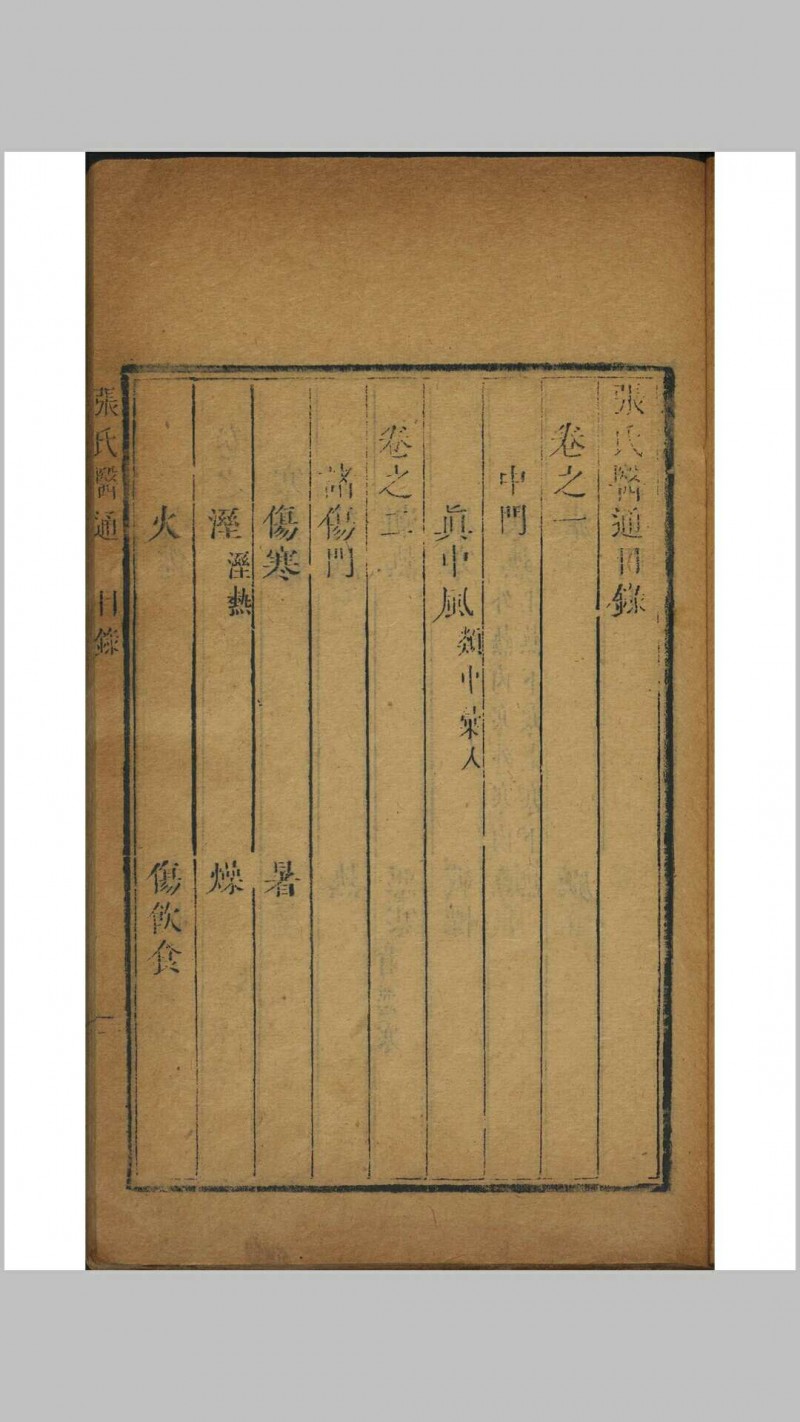 張氏醫通目錄
卷之一
中門
眞中風 類中彙入
卷之二
諸傷門
傷寒 暑
溼 溼熱 燥
火 傷飲食
張氏醫通 目錄